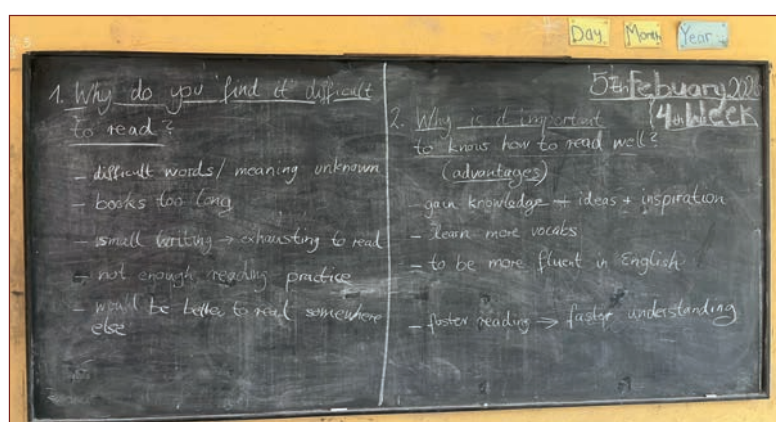 Day Month Year
5th Febuary 202
4th Week
1. Why do you find it difficult
to read?
- difficult words/ meaning unknown
- books too long
- small writing → exhausting to read
- not enough reading practice
- would be better to read somewhere
else
2. Why is it important
to know how to read well?
(advantages)
- gain knowledge + ideas + inspiration
- learn more vocabs
- to be more fluent in English
- faster reading → faster understanding